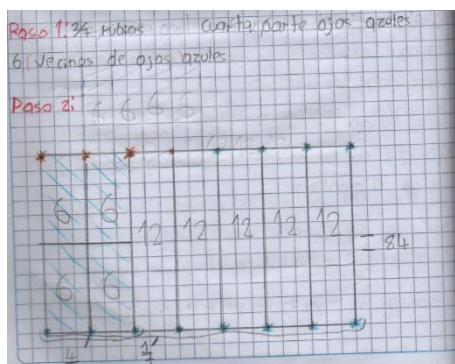 Paso 1: 2/7 rubios cuarta parte ojos azules
6 vecinos de ojos azules
Paso 2: 6 6 6 6
6 6 12 12 12 12 12 = 84
6 6